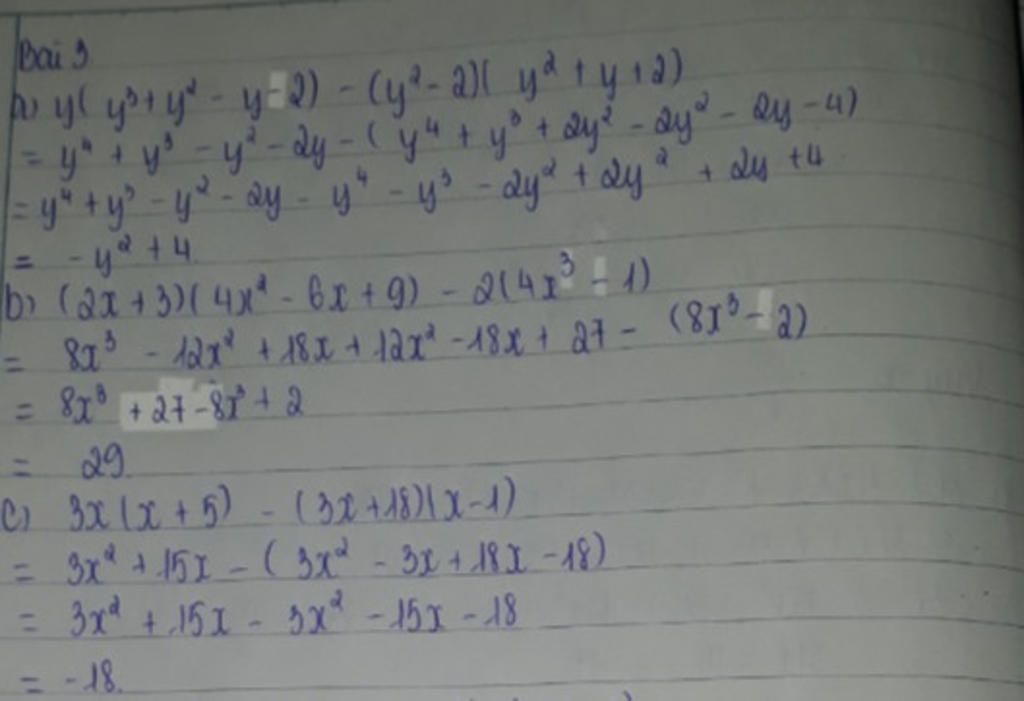 Bài 3
a) y( y³ + y² - y - 2) - (y² - 2)( y² + y + 2)
= y⁴ + y³ - y² - 2y - ( y⁴ + y³ + 2y² - 2y² - 2y - 4)
= y⁴ + y³ - y² - 2y - y⁴ - y³ - 2y² + 2y² + 2y + 4
= - y² + 4
b) (2x + 3)( 4x² - 6x + 9) - 2(4x³ - 1)
= 8x³ - 12x² + 18x + 12x² - 18x + 27 - (8x³ - 2)
= 8x³ + 27 - 8x³ + 2
= 29.
c) 3x(x + 5) - (3x + 18)(x - 1)
= 3x² + 15x - ( 3x² - 3x + 18x - 18)
= 3x² + 15x - 3x² - 15x - 18
= - 18.